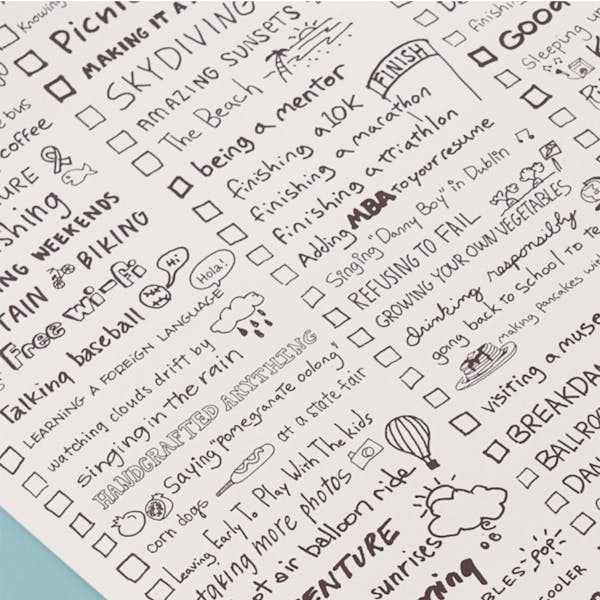 Knowing
Picnic
MAKING IT A
SKYDIVING
AMAZING SUNSETS
The Beach
being a mentor
FINISH
finishing a 10K
finishing a marathon
finishing a triathlon
Adding MBA to your resume
Singing "Danny Boy" in Dublin
REFUSING TO FAIL
GROWING YOUR OWN VEGETABLES
drinking responsibly
going back to school to te
making pancakes with
visiting a muse
BREAKDAN
BALLROO
DAN
Finishin
GOOD
Sleeping u
bus
coffee
URE
shing
NG WEEKENDS
TAIN BIKING
Free wi-fi
Hi
Talking baseball
Hola!
LEARNING A FOREIGN LANGUAGE
watching clouds drift by
singing in the rain
HANDCRAFTED ANYTHING
Saying "pomegranate oolong"
corn dogs at a state fair
Leaving Early To Play With The Kids
taking more photos
ot air balloon ride
ENTURE
sunrises
ning
BLES
POP
COOLER